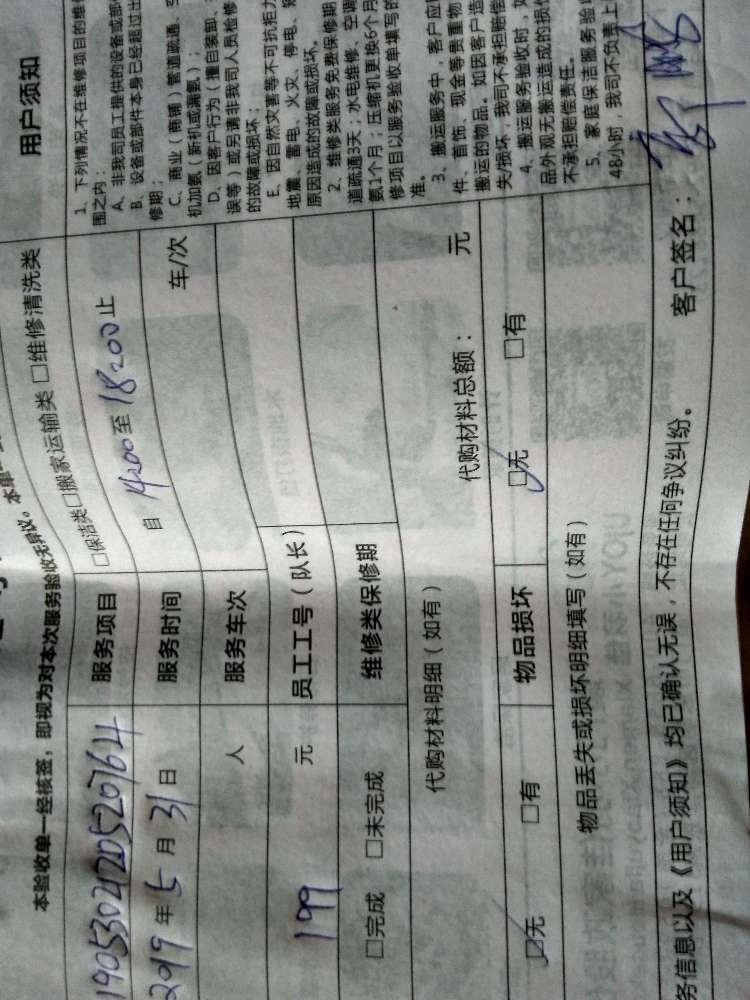 本验收单一经核签，即视为对本次服务验收无异议。
19053042205207614
服务项目
□保洁类□搬家运输类 □维修清洗类
2019 年 5 月 31 日
服务时间
自 14:00 至 18:00 止
人
服务车次
车/次
199 元
员工工号（队长）
□完成 □未完成
维修类保修期
代购材料明细（如有）
代购材料总额：
元
□无 □有
物品损坏
□无 □有
物品丢失或损坏明细填写（如有）
务信息以及《用户须知》均已确认无误，不存在任何争议纠纷。
客户签名：
用户须知
1、下列情况不在维修项目的维
围之内：
A、非我司员工提供的设备或部
B、设备或部件本身已经超过出
修期；
C、商业（商铺）管道疏通、空
机加氨（新机或漏氨）；
D、因客户行为（擅自装卸、
误等）或另请非我司人员检修
的故障或损坏；
E、因自然灾害等不可抗拒力
地震、雷电、火灾、停电、
原因造成的故障或损坏。
2、维修类服务免费保修期
道疏通3天；水电维修、空调
氨1个月；压缩机更换6个月
修项目以服务验收单填写的
准。
3、搬运服务中，客户应
件、首饰、现金等贵重物
搬运的物品。如因客户造
失/损坏，我司不承担赔偿
4、搬运服务验收时，如
品外观无搬运造成的损
不承担赔偿责任。
5、家庭保洁服务验收
48小时，我司不负责上